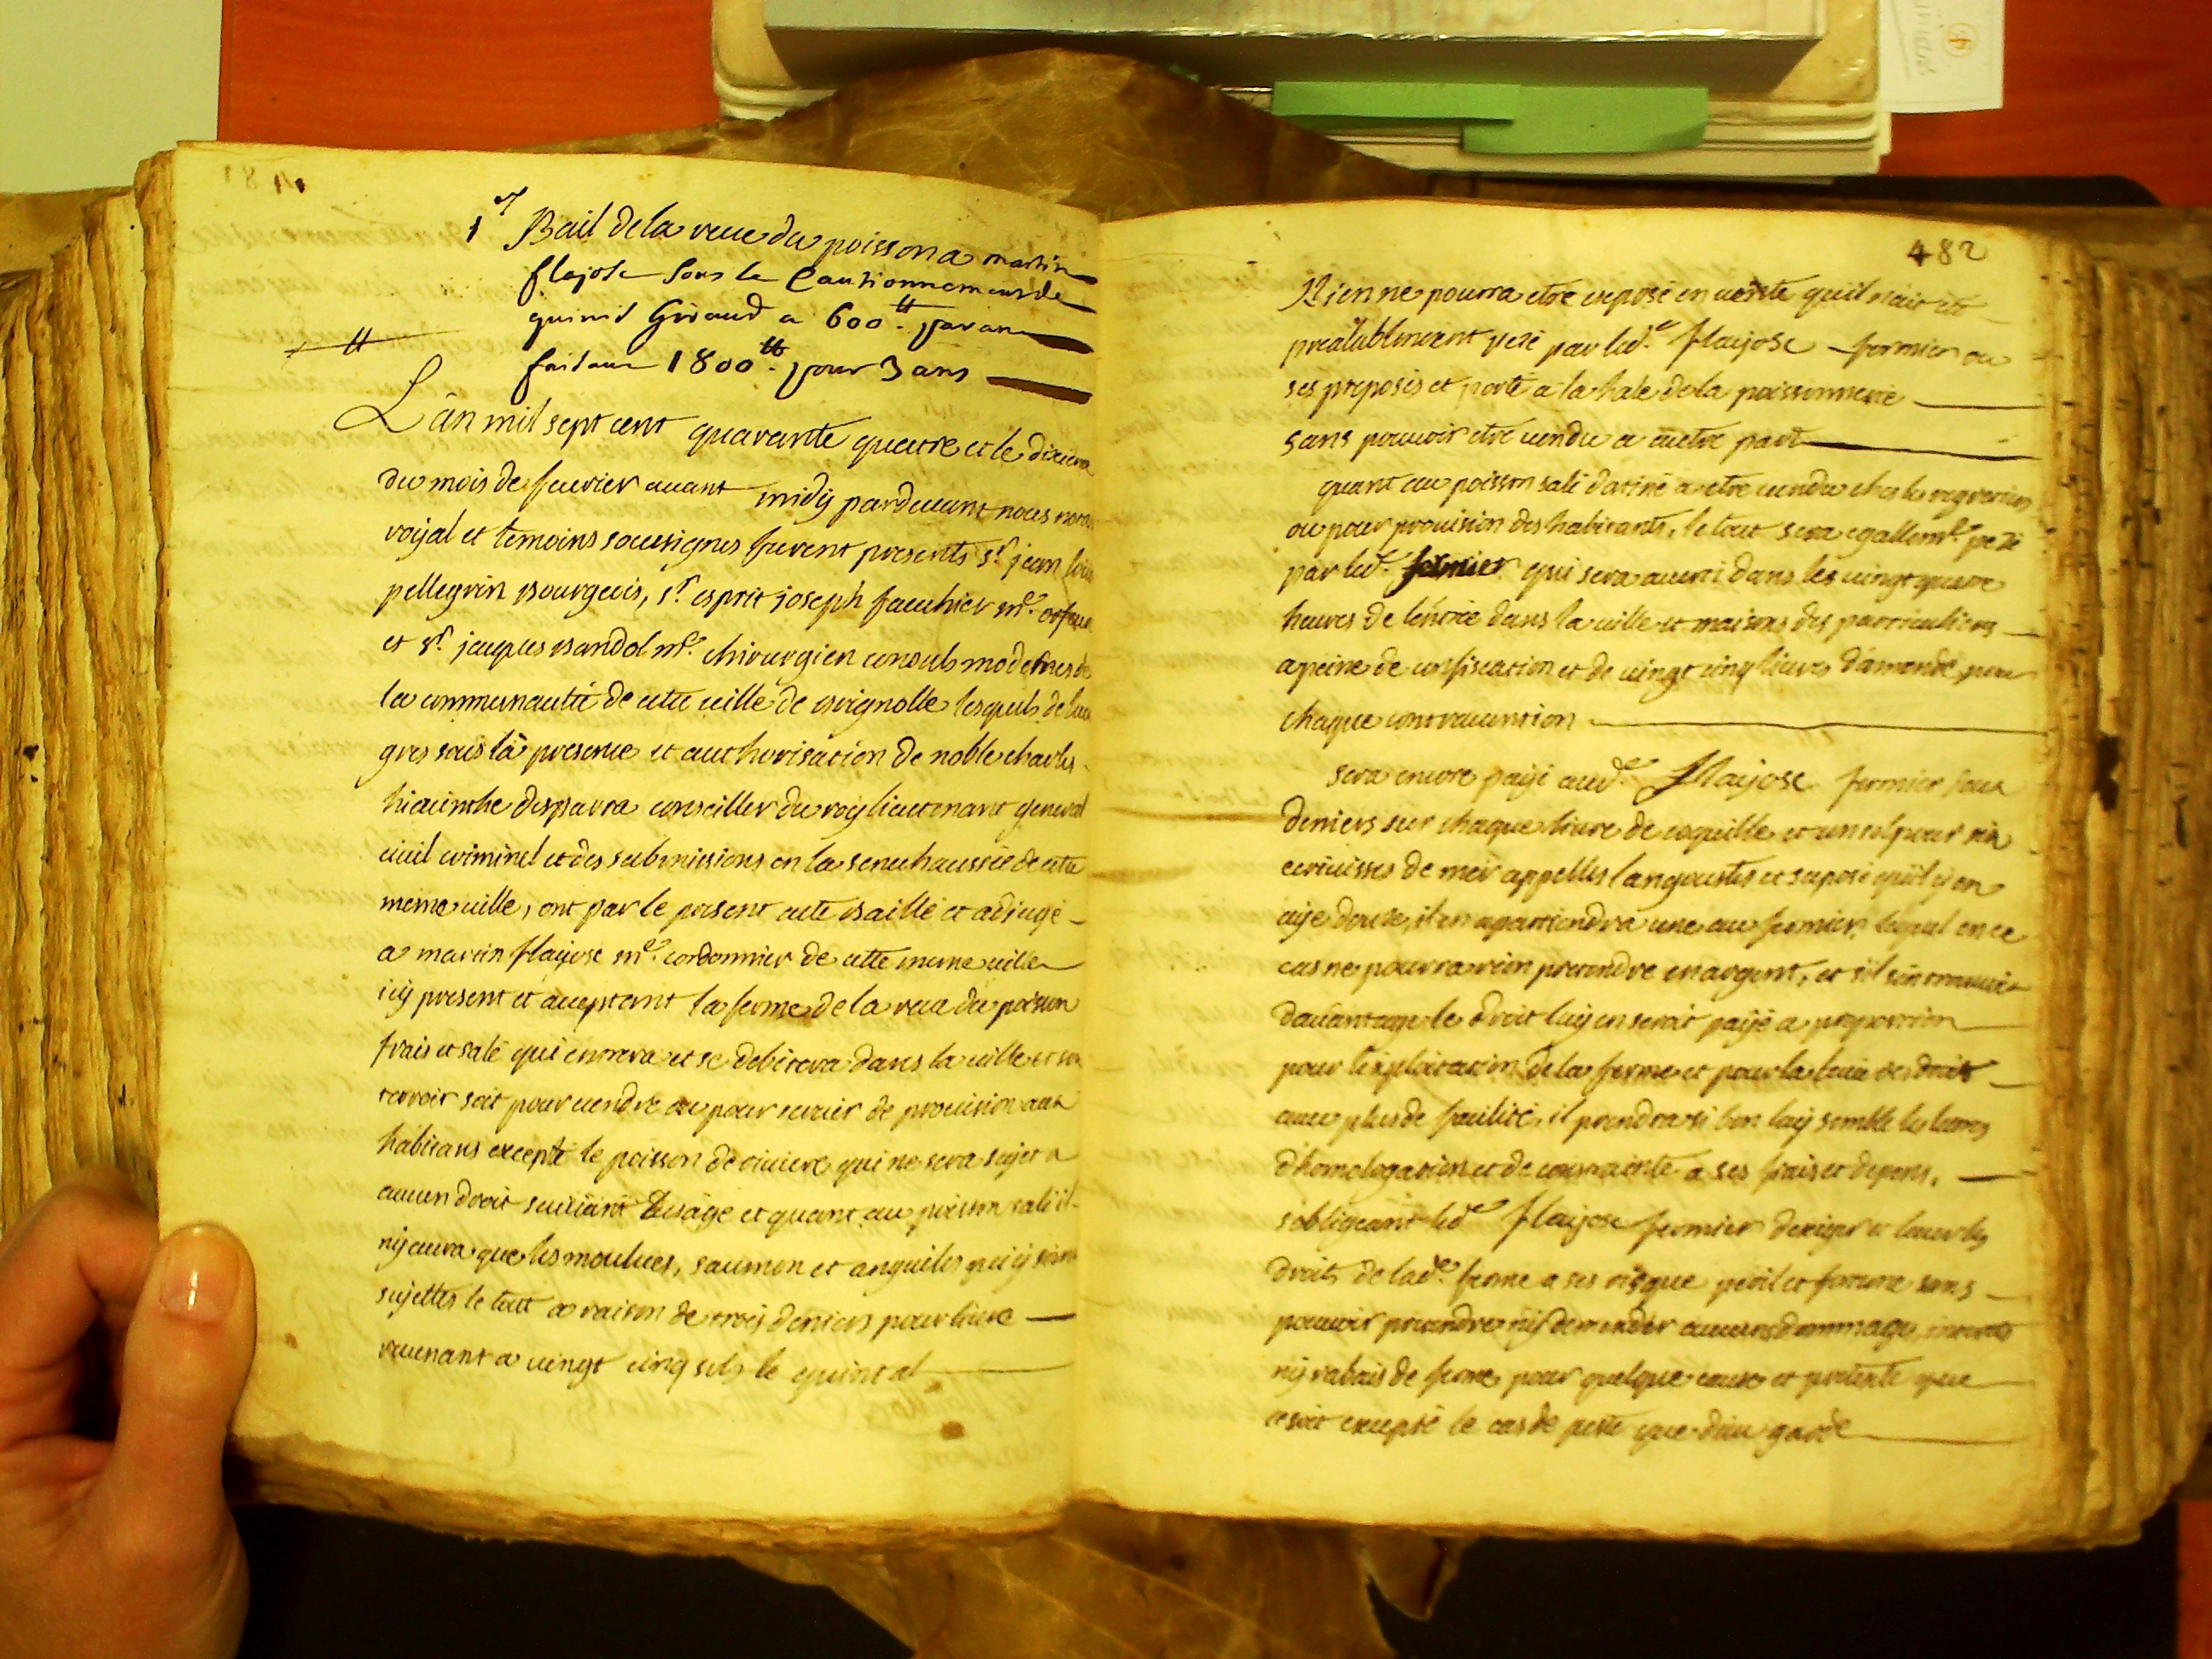 1er Bail de la reve du poisson a martin
flajose sous le Cautionnement de
Giraud a 600 ₶ par an
faisant 1800 ₶ pour 3 ans
L'an mil sept cent quarante quatre et le dixieme
du mois de feuvrier auant midy pardeuant nous
royal et temoins soussignes furent presents sr. jean louis
pellegrin Bourgeois, sr. esprit joseph fauchier me.
et sr. jacques Bandol me. chirurgien consuls modernes de
la communauté de cette uille de Brignolle lesquels de leur
gres sous la presence et authorisation de noble charles
hiacinthe desparra conseiller du roy lieutenant general
ciuil criminel et des submissions en la senechaussée de cette
meme uille, ont par le present acte Baillé et adjugé
a martin flayose me. cordonnier de cette meme uille
icy present et aceptant la ferme de la reue du poisson
frais et salé qui entrera et se debitera dans la uille et son
terroir soit pour uendre ou pour seruir de prouision aux
habitans excepté le poisson de riuiere qui ne sera sujet a
aucun droit suiuant L'usage et quant au poisson salé il
ny aura que les moulues, saumon et anguiles qui y soint
sujettes le tout a raison de trois deniers pour liure
reuenant a uingt cinq sols le quintal
482
Rien ne pourra etre exposé en uente quil n'ait eté
prealablement pezé par led. flayose fermier ou
ses preposés et porté a la hale de la poissonnerie
sans pouuoir etre uendu a autre part
quant au poisson salé destiné a etre uendu ches les regratiers
ou pour prouision des habitants, le tout sera egallemt. pezé
par led. fermier qui sera auerti dans les uingt quatre
heures de l'entrée dans la uille et maisons des particuliers
a peine de confiscation et de uingt cinq liures d'amande pour
chaque contrauention
sera encore payé aud. flayose fermier deux
deniers sur chaque liure de coquille et un sol pour six
ecreuisses de mer appelles langoustes et suposé quil y en
aye douze, il en apartiendra une au fermier lequel en ce
cas ne pourra rien pretendre en argent, et s'il s'en trouuoit
dauantage le droit luy en seroit payé a proportion
pour l'exploitation de la ferme et pour la leuée des droits
auec plus de facilité, il prendra si bon luy semble les lettres
d'homologation et de contrainte a ses frais et depens,
s'obligeant led flayose fermier dexiger et leuer les
droits de lad. ferme a ses risque peril et fortune sans
pouuoir pretendre ny demander aucuns dommages interets
ny rabais de ferme pour quelque cause et pretexte que
ce soit excepté le cas de peste que dieu garde